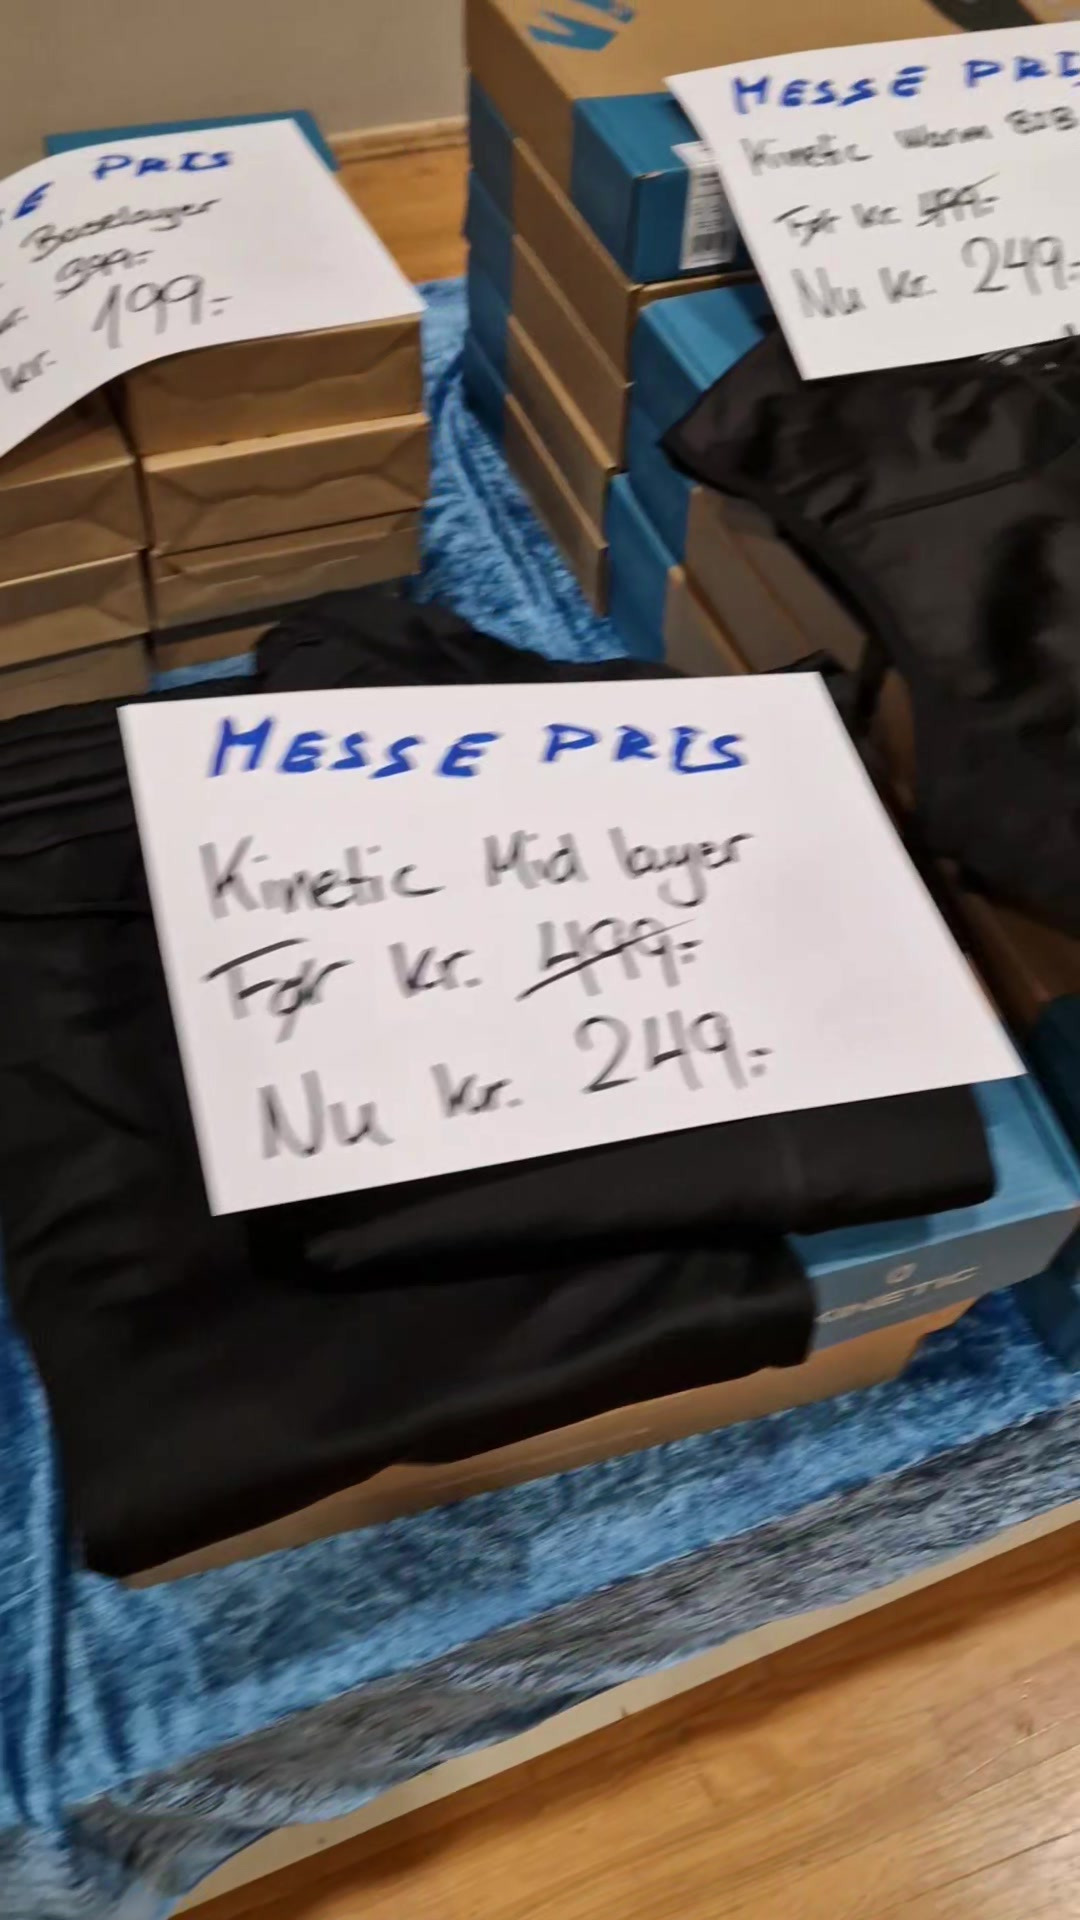 E PRIS
Baselayer
kr. 199.-
MESSE PRIS
Kinetic Warm BIB
Før kr. 499.-
Nu kr. 249.-
MESSE PRIS
Kinetic Mid layer
Før kr. 499.-
Nu kr. 249.-
KINETIC